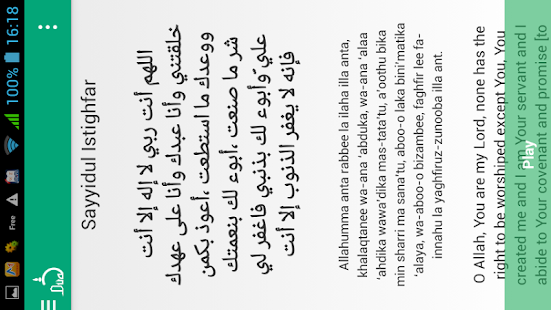 Free
100% 16:18
Dua
Sayyidul Istighfar
اللهم أنت ربي لا إله إلا أنت
خلقتني وأنا عبدك وأنا على عهدك
ووعدك ما استطعت ،أعوذ بكمن
شر ما صنعت ،أبوء لك بنعمتك
علي وَأبوء لك بذنبي فاغفر لي
فإنه لا يغفر الذنوب إلا أنت
Allahumma anta rabbee la ilaha illa anta,
khalaqtanee wa-ana 'abduka, wa-ana 'alaa
'ahdika wawa'dika mas-tata'tu, a'oothu bika
min sharri ma sana'tu, aboo-o laka bini'matika
'alaya, wa-aboo-o bizambee, faghfir lee fa-
innahu la yaghfiruz-zunooba illa ant.
O Allah, You are my Lord, none has the
right to be worshiped except You, You
created me and I am Your servant and I
abide to Your covenant and promise [to
Play